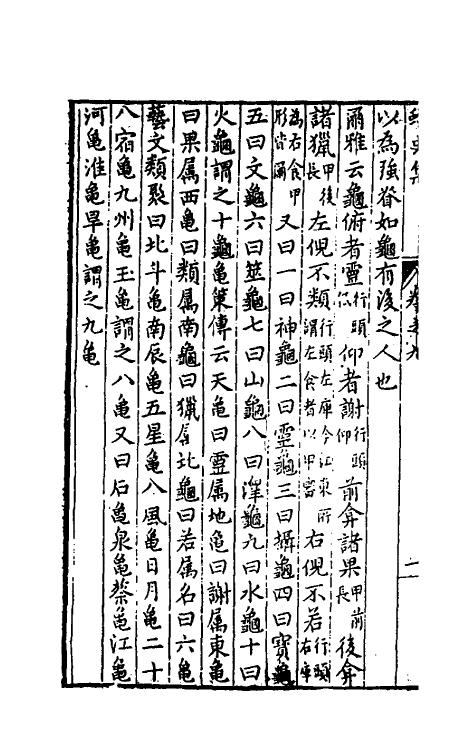 以為強脊如龜有後之人也
爾雅云龜俯者靈行頭低仰者謝行頭仰前弇諸果甲前長後弇
諸獵甲後長左倪不類行頭左庳今江東所謂左食者以甲審右倪不若行頭右庳
為右食甲形皆爾又曰一曰神龜二曰靈龜三曰攝龜四曰寶龜
五曰文龜六曰筮龜七曰山龜八曰澤龜九曰水龜十曰
火龜謂之十龜龜策傳云天龜曰靈属地龜曰謝属東龜
曰果属西龜曰類属南龜曰獵属北龜曰若属名曰六龜
藝文類聚曰北斗龜南辰龜五星龜八風龜日月龜二十
八宿龜九州龜玉龜謂之八龜又曰石龜泉龜蔡龜江龜
河龜淮龜旱龜謂之九龜